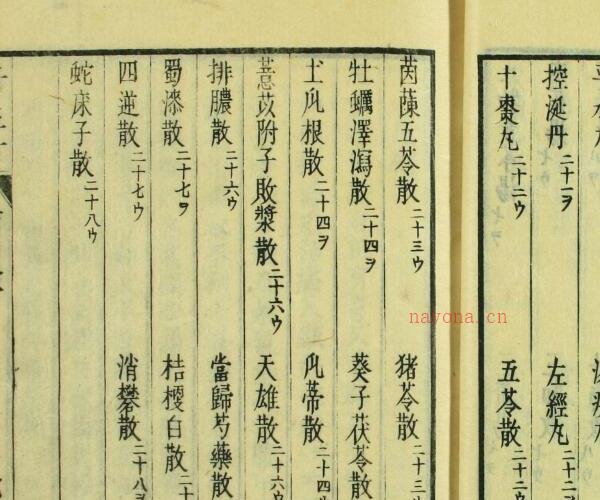 控涎丹二十一ヲ 左經丸二十二
十棗丸二十二ウ 五苓散二十二ウ
茵蔯五苓散二十三ウ 猪苓散二十三
牡蠣澤瀉散二十四ヲ 葵子茯苓散
土瓜根散二十四ヲ 瓜蒂散二十四
薏苡附子敗漿散二十六ウ 天雄散二十六ウ
排膿散二十六ウ 當歸芍藥散
蜀漆散二十七ヲ 桔梗白散二十
四逆散二十七ウ 消礬散二十八ヲ
蛇床子散二十八ウ
nayona.cn